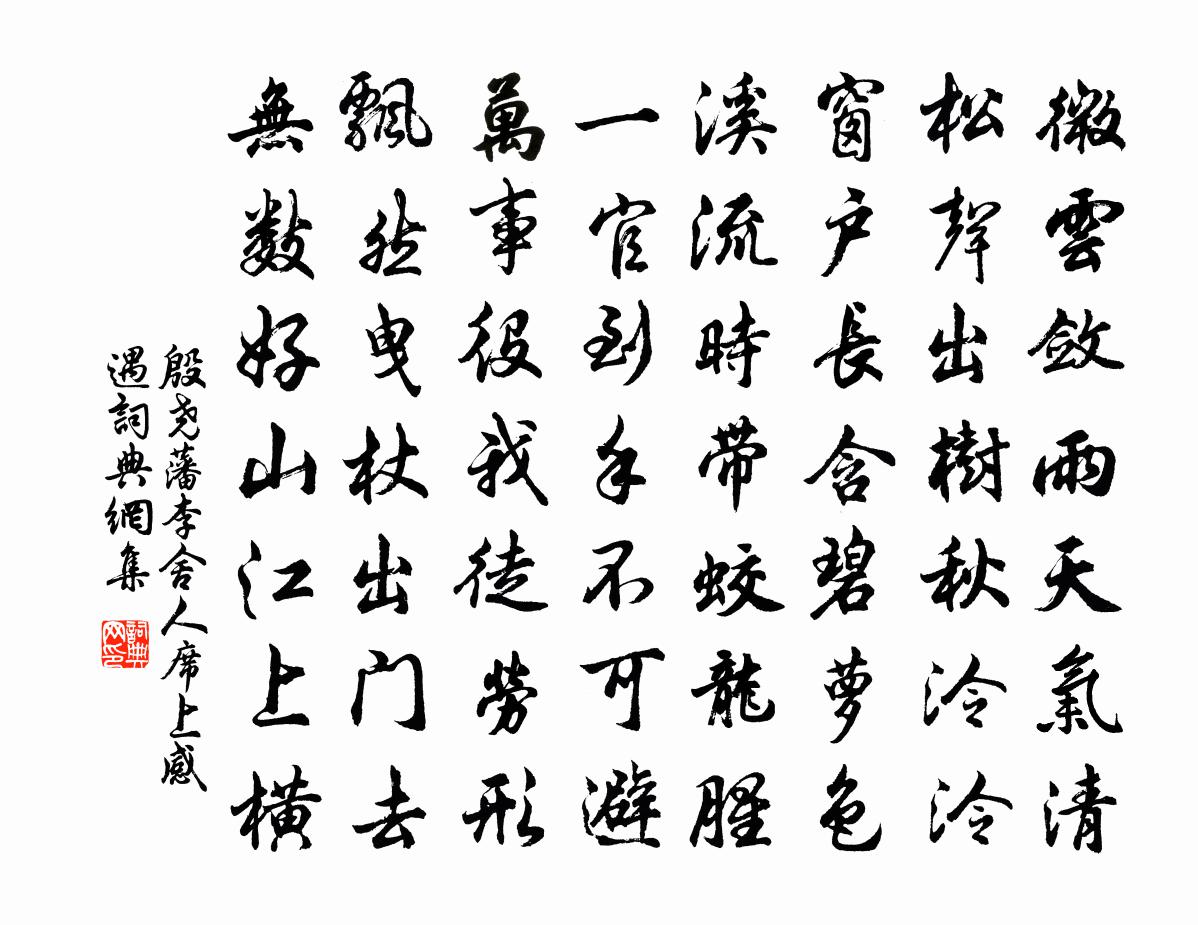 微雲斂雨天氣清
松聲出樹秋泠泠
窗戶長含碧萝色
溪流時帶蛟龍腥
一官到手不可避
萬事役我徒勞形
飄然曳杖出門去
無數好山江上橫
殷尧藩李舍人席上感
遇詞典網集
詞典网印